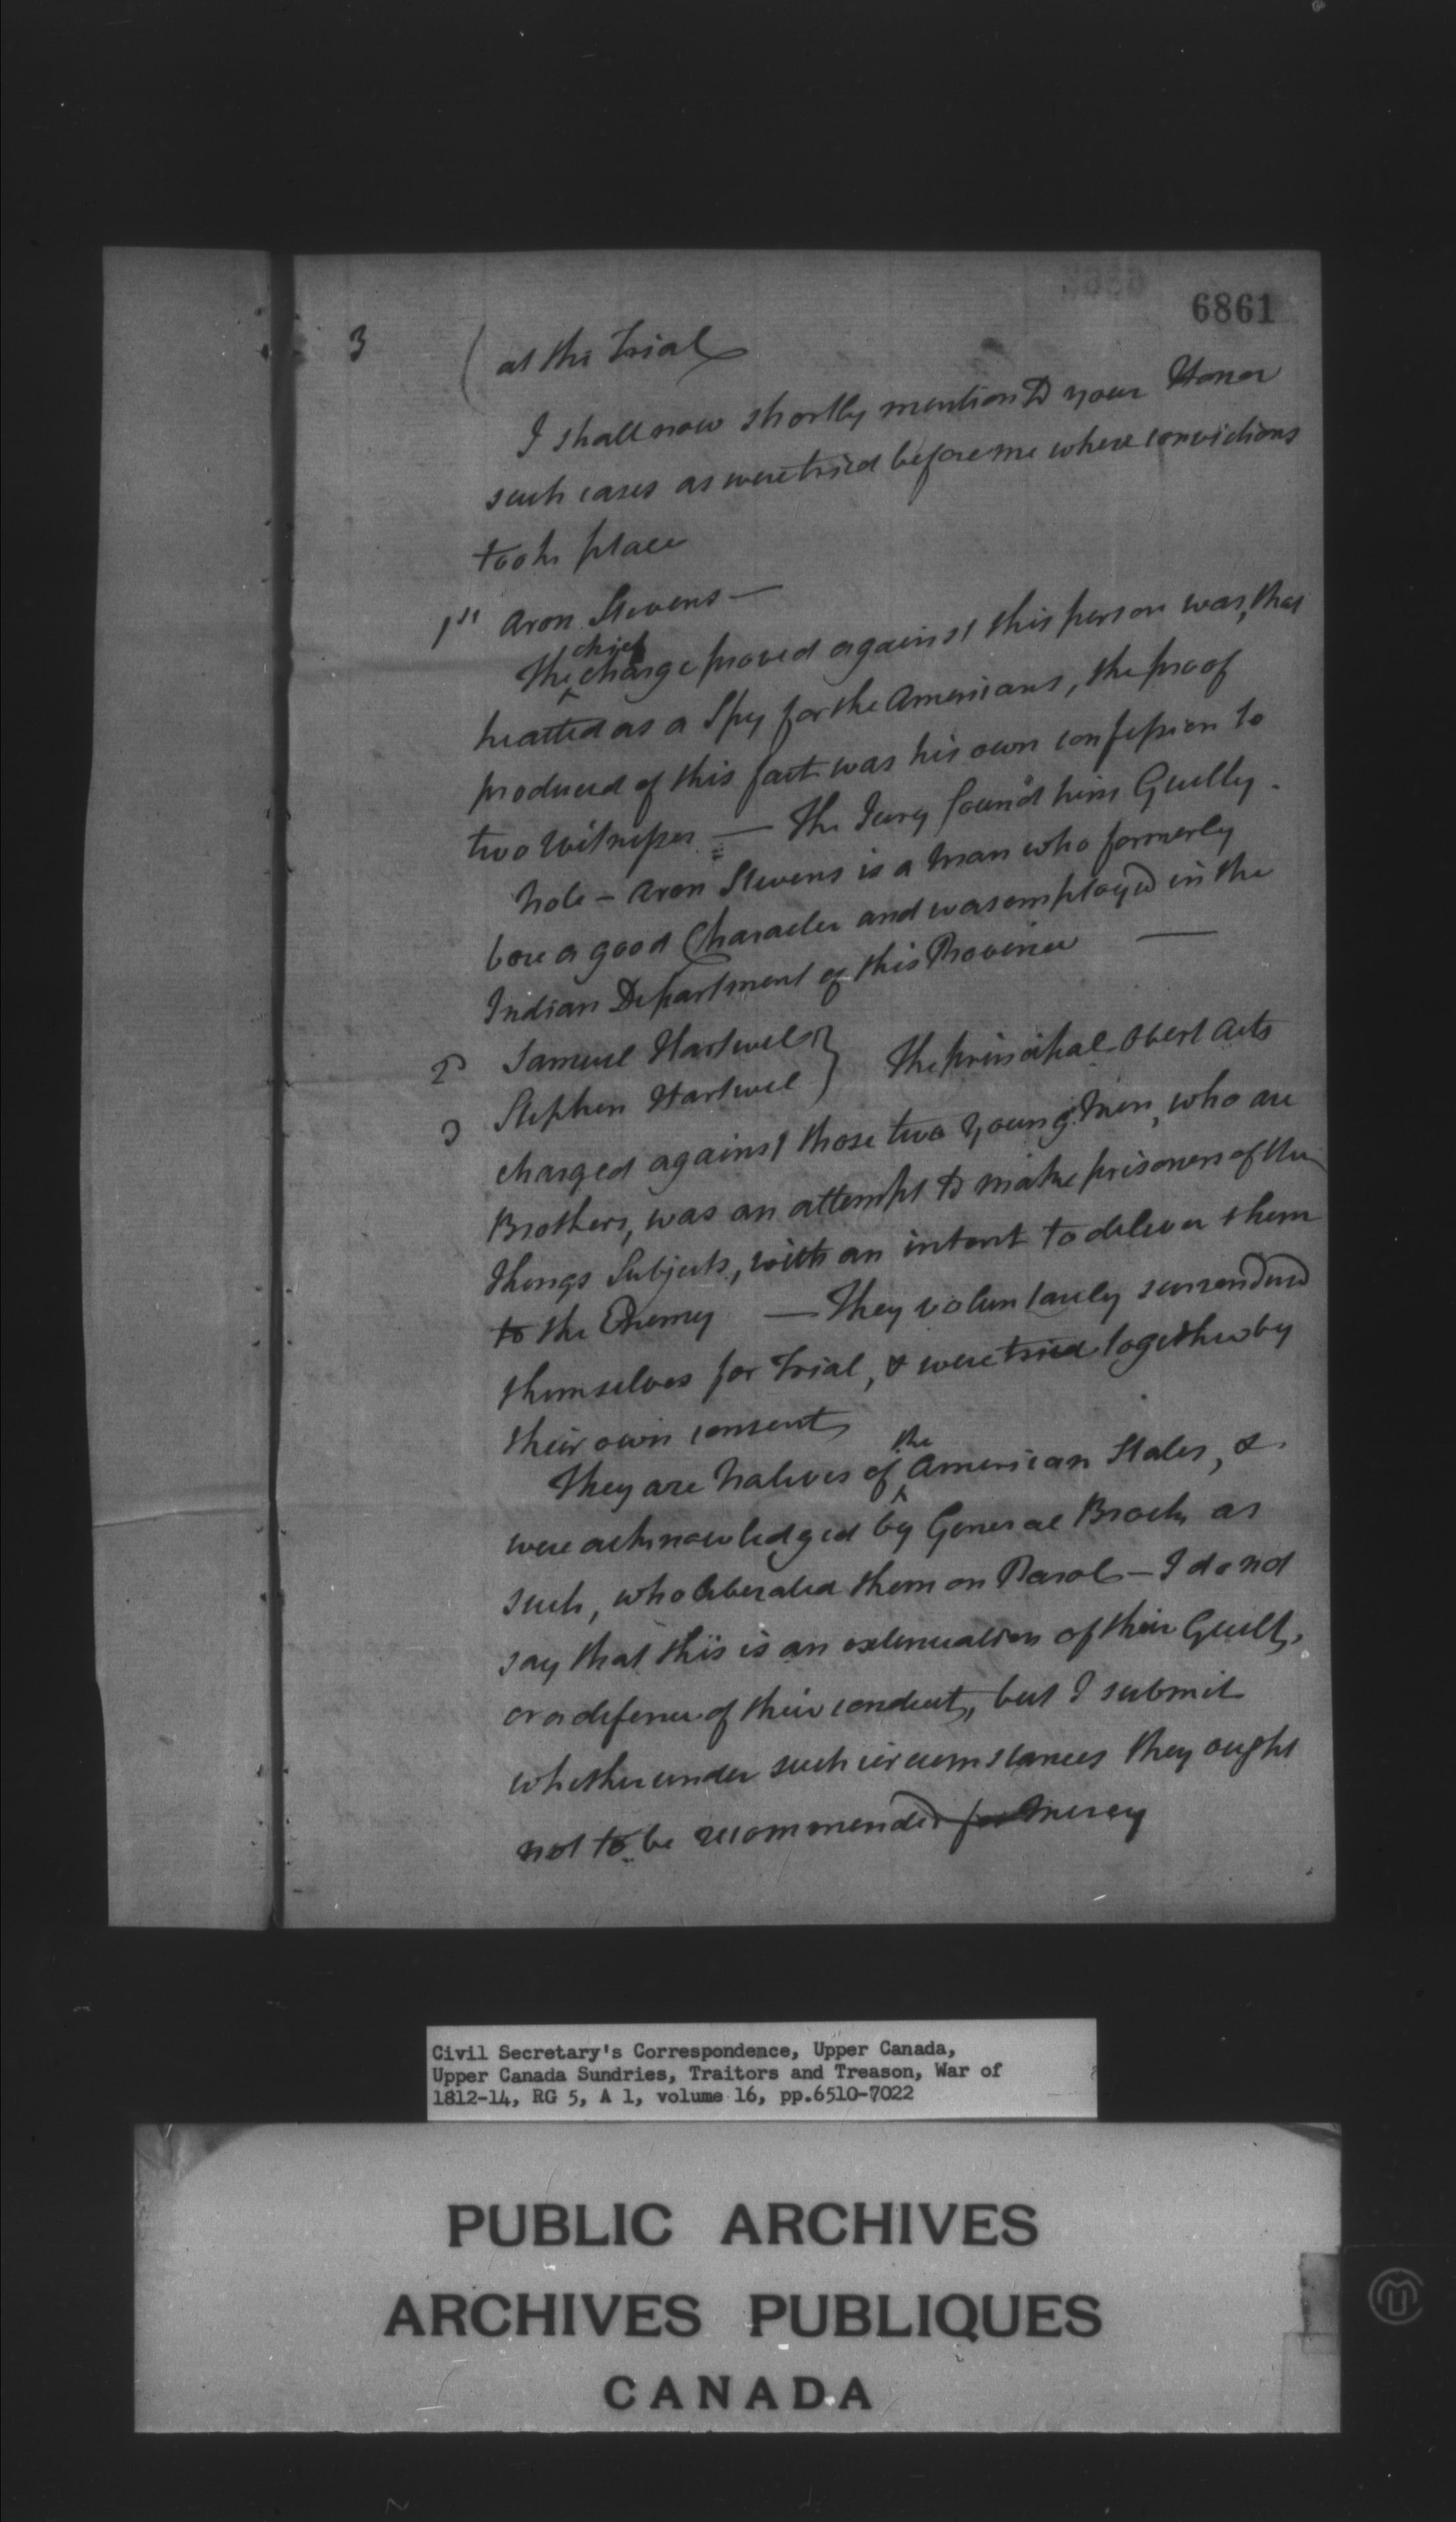 6861
3
( at the Trial
I shall now shortly mention to your Honor
such cases as were tried before me where convictions
took place
1st Aron Stevens —
The chief charge proved against this person was, that
he acted as a Spy for the Americans, the proof
produced of this fact was his own confession to
two Witnesses — The Jury found him Guilty.
Note – Aron Stevens is a Man who formerly
bore a good Character and was employed in the
Indian Department of this Province —
2 Samuel Hartwel }
3 Stephen Hartwel } The principal Overt Acts
charged against those two Young Men, who are
Brothers, was an attempt to make prisoners of the
Kings Subjects, with an intent to deliver them
to the Enemy — They voluntarily surrendered
themselves for Trial, & were tried together by
their own consent
They are Natives of the American States, &
were acknowledged by General Brock as
such, who liberated them on Parol — I do not
say that this is an extenuation of their Guilt,
or a defence of their conduct, but I submit
whether under such circumstances they ought
not to be recommended for Mercy
Civil Secretary's Correspondence, Upper Canada,
Upper Canada Sundries, Traitors and Treason, War of
1812-14, RG 5, A 1, volume 16, pp.6510-7022
PUBLIC ARCHIVES
ARCHIVES PUBLIQUES
CANADA